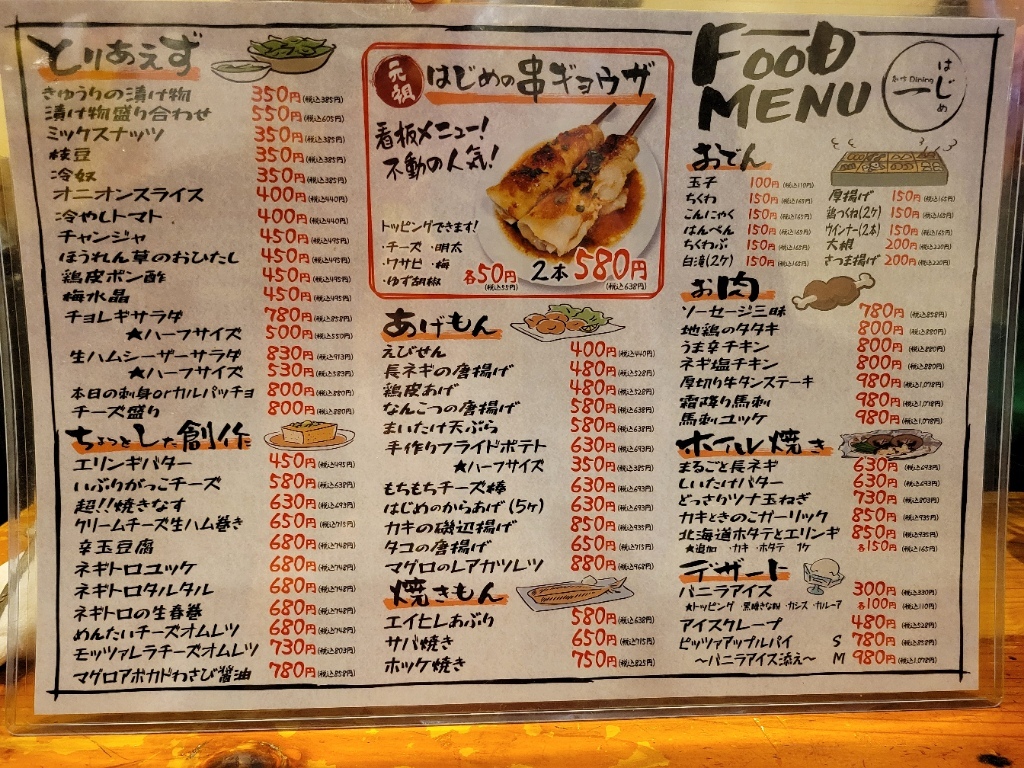 とりあえず
きゅうりの漬け物 350円(税込385円)
漬け物盛り合わせ 550円(税込605円)
ミックスナッツ 350円(税込385円)
枝豆 350円(税込385円)
冷奴 350円(税込385円)
オニオンスライス 400円(税込440円)
冷やしトマト 400円(税込440円)
チャンジャ 450円(税込495円)
ほうれん草のおひたし 450円(税込495円)
鶏皮ポン酢 450円(税込495円)
梅水晶 450円(税込495円)
チョレギサラダ 780円(税込858円)
★ハーフサイズ 500円(税込550円)
生ハムシーザーサラダ 830円(税込913円)
★ハーフサイズ 530円(税込583円)
本日の刺身orカルパッチョ 800円(税込880円)
チーズ盛り 800円(税込880円)
ちょっとした創作
エリンギバター 450円(税込495円)
いぶりがっこチーズ 580円(税込638円)
超!!焼きなす 630円(税込693円)
クリームチーズ生ハム巻き 650円(税込715円)
辛玉豆腐 680円(税込748円)
ネギトロユッケ 680円(税込748円)
ネギトロタルタル 680円(税込748円)
ネギトロの生春巻 680円(税込748円)
めんたいチーズオムレツ 680円(税込748円)
モッツァレラチーズオムレツ 730円(税込803円)
マグロアボカドわさび醤油 780円(税込858円)
元祖 はじめの串ギョウザ
看板メニュー!
不動の人気!
トッピングできます!
・チーズ ・明太
・ワサビ ・梅
・ゆず胡椒
各50円(税込55円)
2本 580円(税込638円)
あげもん
えびせん 400円(税込440円)
長ネギの唐揚げ 480円(税込528円)
鶏皮あげ 480円(税込528円)
なんこつの唐揚げ 580円(税込638円)
まいたけ天ぷら 580円(税込638円)
手作りフライドポテト 630円(税込693円)
★ハーフサイズ 350円(税込385円)
もちもちチーズ棒 630円(税込693円)
はじめのからあげ(5ヶ) 630円(税込693円)
カキの磯辺揚げ 850円(税込935円)
タコの唐揚げ 650円(税込715円)
マグロのレアカツレツ 880円(税込968円)
焼きもん
エイヒレあぶり 580円(税込638円)
サバ焼き 650円(税込715円)
ホッケ焼き 750円(税込825円)
FOOD
MENU
Dining
はじめ
おでん
玉子 100円(税込110円)
ちくわ 150円(税込165円)
こんにゃく 150円(税込165円)
はんぺん 150円(税込165円)
ちくわぶ 150円(税込165円)
白滝(2ケ) 150円(税込165円)
厚揚げ 150円(税込165円)
鶏つくね(2ケ) 150円(税込165円)
ウインナー(2本) 150円(税込165円)
大根 200円(税込220円)
さつま揚げ 200円(税込220円)
お肉
ソーセージ三昧 780円(税込858円)
地鶏のタタキ 800円(税込880円)
うま辛チキン 800円(税込880円)
ネギ塩チキン 800円(税込880円)
厚切り牛タンステーキ 980円(税込1,078円)
霜降り馬刺 980円(税込1,078円)
馬刺ユッケ 980円(税込1,078円)
ホイル焼き
まるごと長ネギ 630円(税込693円)
しいたけバター 630円(税込693円)
どっさりツナ玉ねぎ 730円(税込803円)
カキときのこガーリック 850円(税込935円)
北海道ホタテとエリンギ 850円(税込935円)
★追加 ・カキ ・ホタテ 1ケ 各150円(税込165円)
デザート
バニラアイス 300円(税込330円)
★トッピング ・黒蜜きな粉 ・カシス ・カルーア 各100円(税込110円)
アイスクレープ 480円(税込528円)
ピッツァアップルパイ S 780円(税込858円)
〜バニラアイス添え〜 M 980円(税込1,078円)